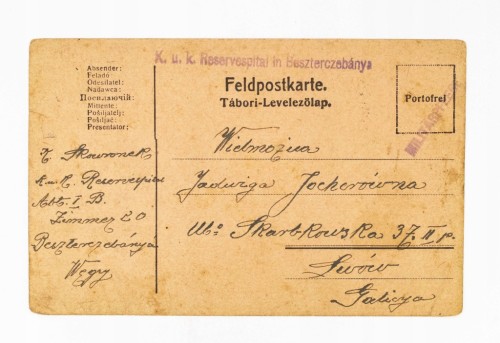 K. u. k. Reservespital in Beszterczebánya
Absender:
Feladó
Odesílatel:
Nadawca:
Посилаючий:
Mittente:
Pošiljatelj:
Pošiljač:
Presentator:
Feldpostkarte.
Tábori-Levelezőlap.
Portofrei
K. Skowronek
k.u.K. Reservespital
Abt. I B.
Zimmer 20
Beszterczebánya
Węgry
Wielmożna
Jadwiga Jocherówna
Ul. Skarbkowska 37. II p.
Lwów
Galicya